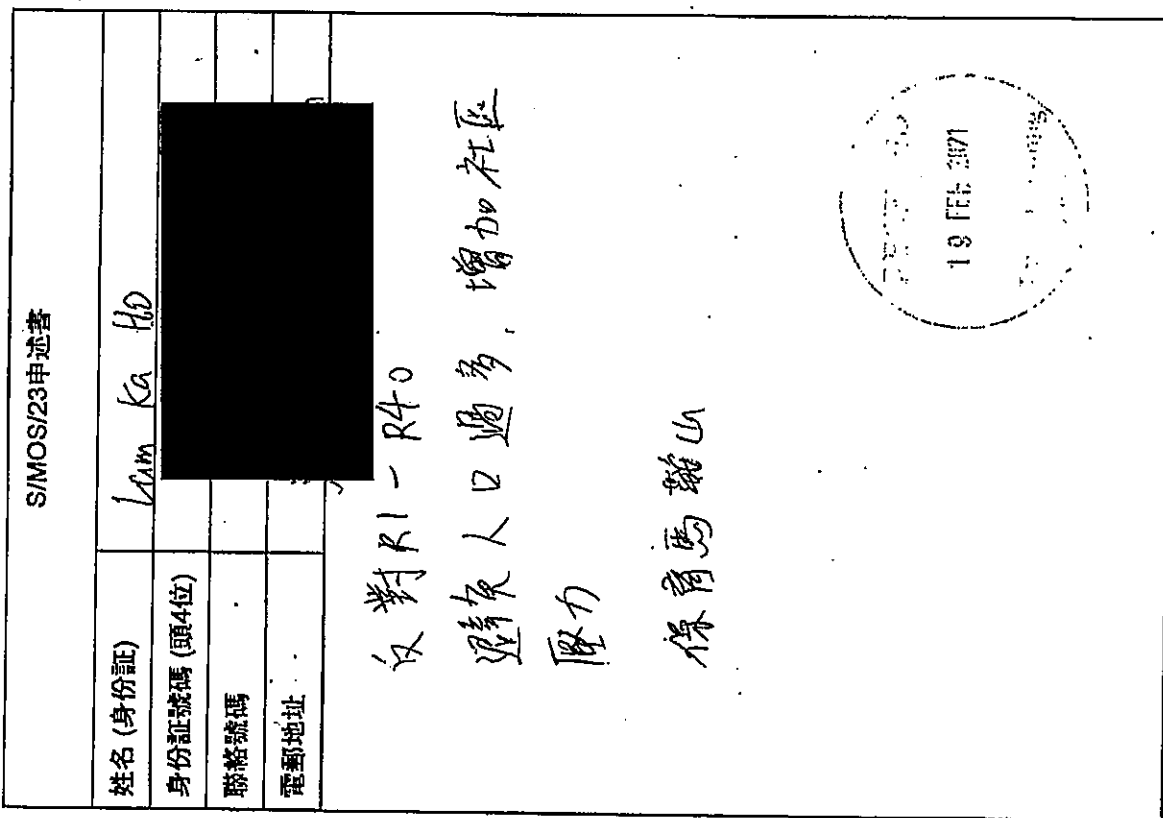 S/MOS/23申述書
姓名 (身份証) Lam Ka Ho
身份証號碼 (頭4位)
聯絡號碼
電郵地址
反對R1-R40
避免人口過多，增加社區
壓力
保育馬鞍山
19 FEB 2021